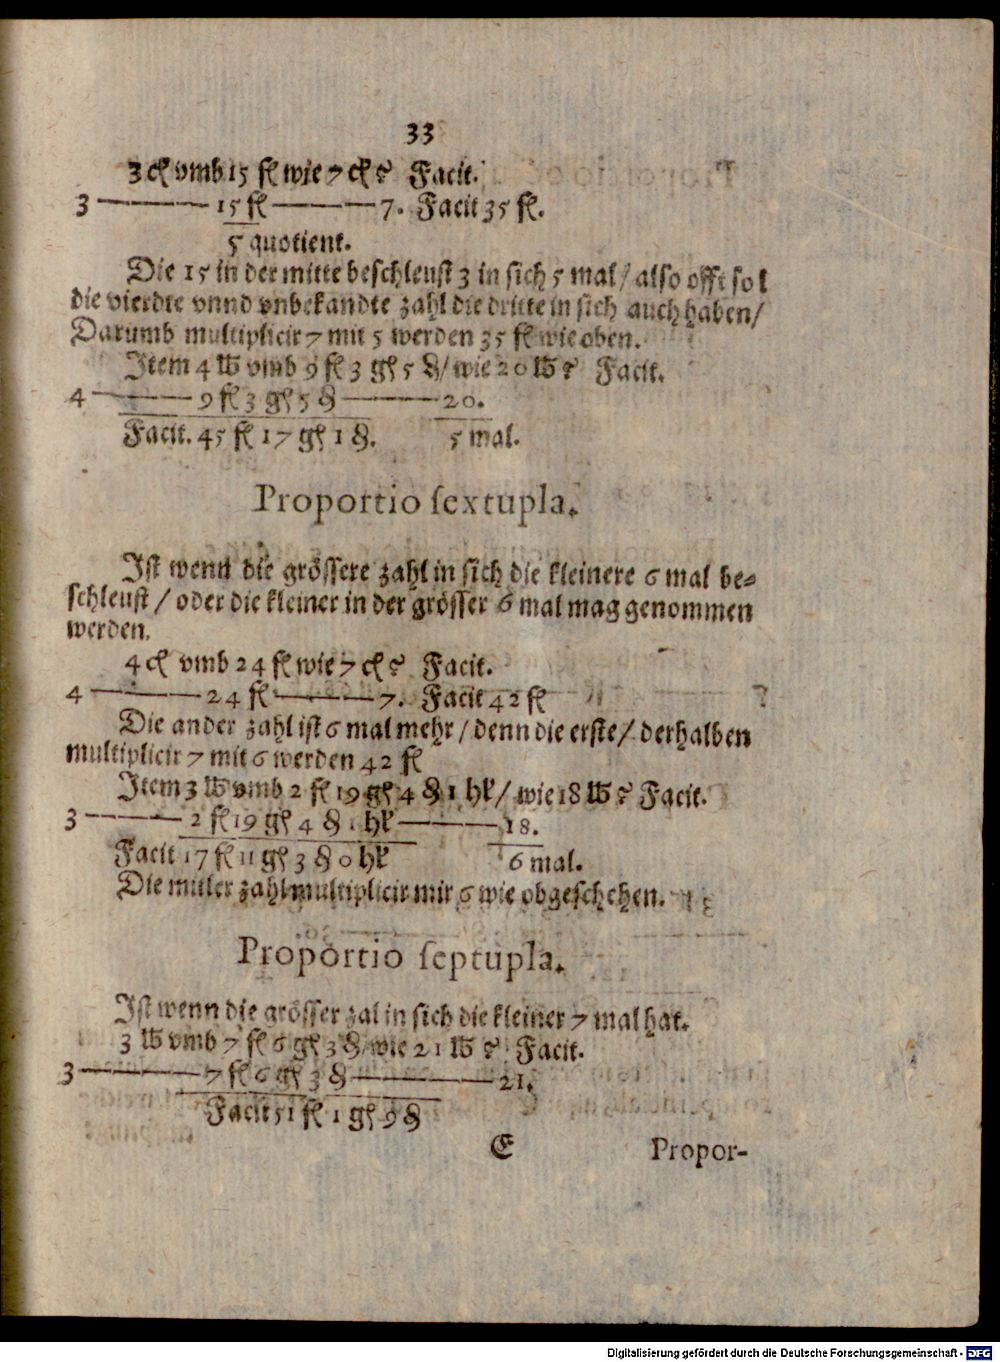 33
3 cł vmb 15 fl wie 7 cł? Facit.
3 ——— 15 fl ——— 7. Facit 35 fl.
5 quotient.
Die 15 in der mitte beschleust 3 in sich 5 mal / also offt sol
die vierdte vnnd vnbekandte zahl die dritte in sich auch haben /
Darumb multiplicir 7 mit 5 werden 35 fl wie oben.
Item 4 lb vmb 9 fl 3 gl 5 ₰ / wie 20 lb? Facit.
4 ——— 9 fl 3 gl 5 ₰ ——— 20.
Facit. 45 fl 17 gl 1 ₰. 5 mal.
Proportio ſextupla.
Ist wenn die grössere zahl in sich die kleinere 6 mal be=
schleust / oder die kleiner in der grösser 6 mal mag genommen
werden.
4 cł vmb 24 fl wie 7 cł? Facit.
4 ——— 24 fl ——— 7. Facit 42 fl
Die ander zahl ist 6 mal mehr / denn die erste / derhalben
multiplicir 7 mit 6 werden 42 fl
Item 3 lb vmb 2 fl 19 gl 4 ₰ 1 hl / wie 18 lb? Facit.
3 ——— 2 fl 19 gl 4 ₰ 1 hl ——— 18.
Facit 17 fl 11 gl 3 ₰ 0 hl 6 mal.
Die mitler zahl multiplicir mir 6 wie obgeschehen.
Proportio ſeptupla.
Ist wenn die grösser zal in sich die kleiner 7 mal hat.
3 lb vmb 7 fl 6 gl 3 ₰ wie 21 lb? Facit.
3 ——— 7 fl 6 gl 3 ₰ ——— 21.
Facit 51 fl 1 gl 9 ₰
E Propor-
Digitalisierung gefördert durch die Deutsche Forschungsgemeinschaft - DFG